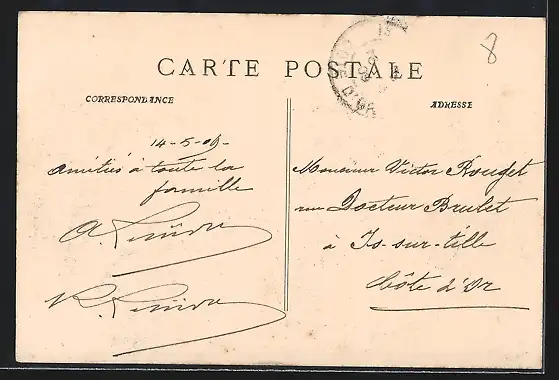 8
CARTE POSTALE
CORRESPONDANCE
ADRESSE
CÔTE D'OR
14-5-09-
Amitiés à toute la
famille
A.
R.
Monsieur Victor Rouget
rue Docteur Brulet
à Is-sur-tille
Côte d'Or